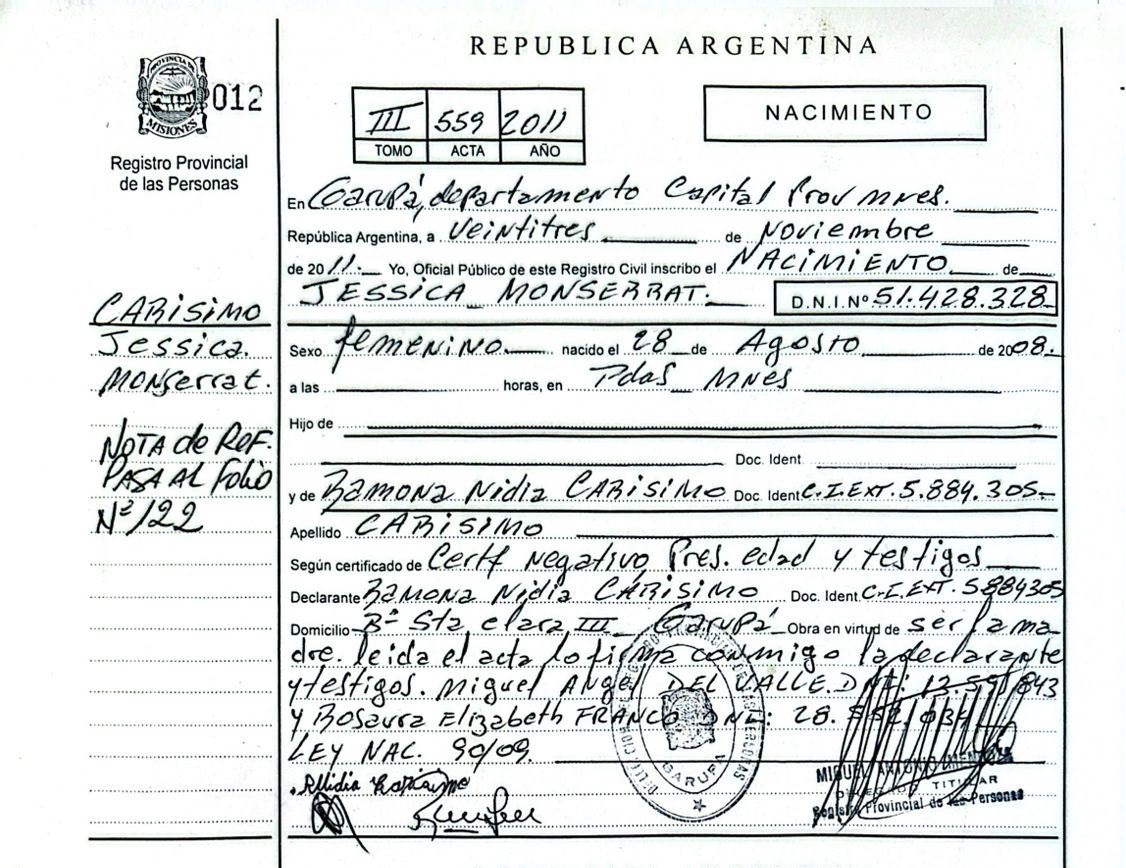 REPUBLICA ARGENTINA
PROVINCIA DE
MISIONES
012
Registro Provincial
de las Personas
III 559 2011
TOMO ACTA AÑO
NACIMIENTO
En Garupá, departamento Capital Prov Mnes.
República Argentina, a Veintitres de Noviembre
de 2011. Yo, Oficial Público de este Registro Civil inscribo el NACIMIENTO de
JESSICA MONSERRAT. D.N.I.Nº 51.428.328
CARISIMO
Jessica.
Monserrat.
Sexo femenino nacido el 28 de Agosto de 2008.
a las horas, en Pdas Mnes
Hijo de
Doc. Ident.
NOTA de REF.
PASA AL Folio
Nº 122
y de Ramona Nidia CARISIMO Doc. Ident. C.I.EXT. 5.884.305
Apellido CARISIMO
Según certificado de Certf negativo, Pres. edad y testigos
Declarante Ramona Nidia CARISIMO Doc. Ident. C.I.EXT. 5884305
Domicilio Bº Sta clara III Garupá Obra en virtud de ser la ma
dre. leida el acta lo firma conmigo la declarante
y testigos. Miguel Angel DEL VALLE. DNI:
y Rosaura Elizabeth FRANCO DNI: 28.
LEY NAC. 90/09.
GARUPA
MIGUEL ANTONIO
DIRECTOR TITULAR
Registro Provincial de las Personas